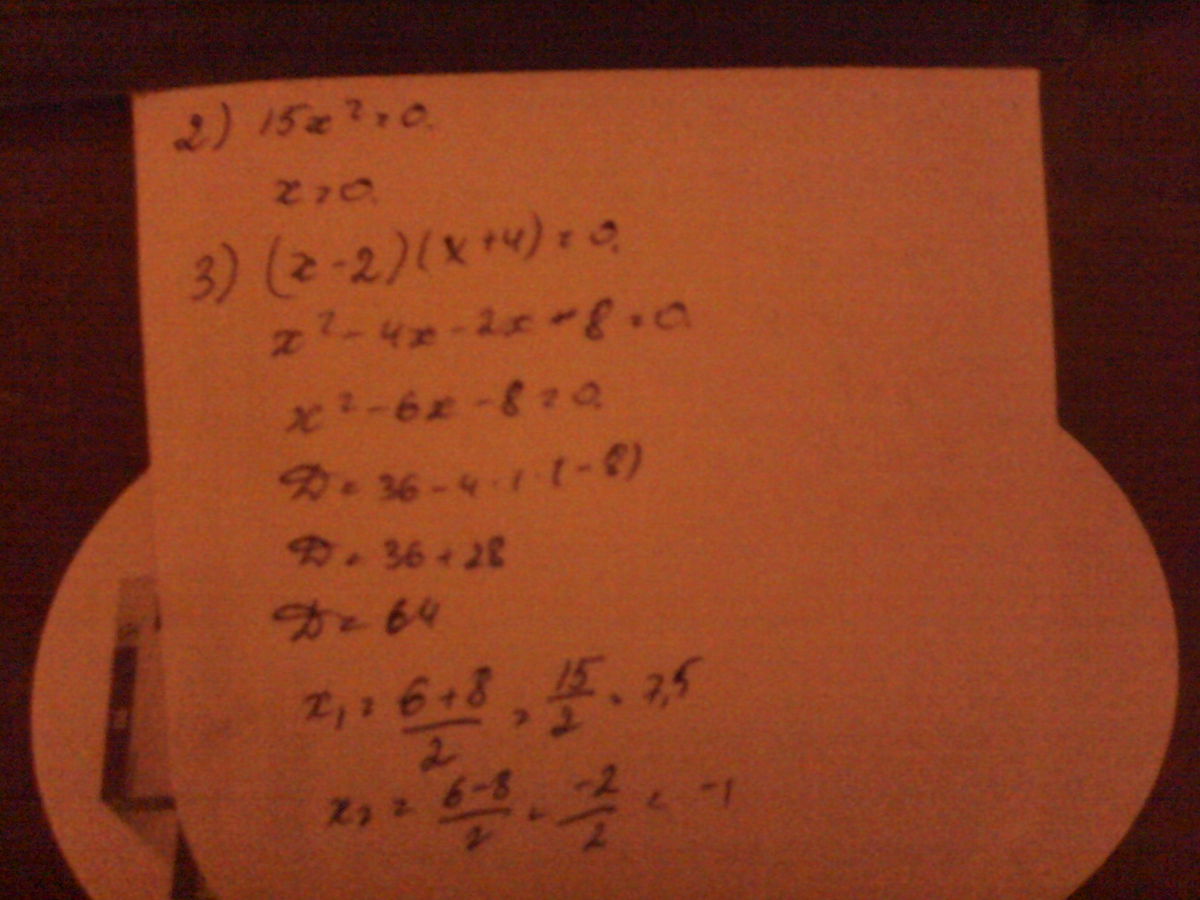 2) 15x² = 0.
x = 0.
3) (x - 2)(x + 4) = 0.
x² - 4x - 2x - 8 = 0.
x² - 6x - 8 = 0.
D = 36 - 4 · 1 · (-8)
D = 36 + 28
D = 64
x₁ = \frac{6+8}{2} = \frac{15}{2} = 7,5
x₂ = \frac{6-8}{2} = \frac{-2}{2} = -1